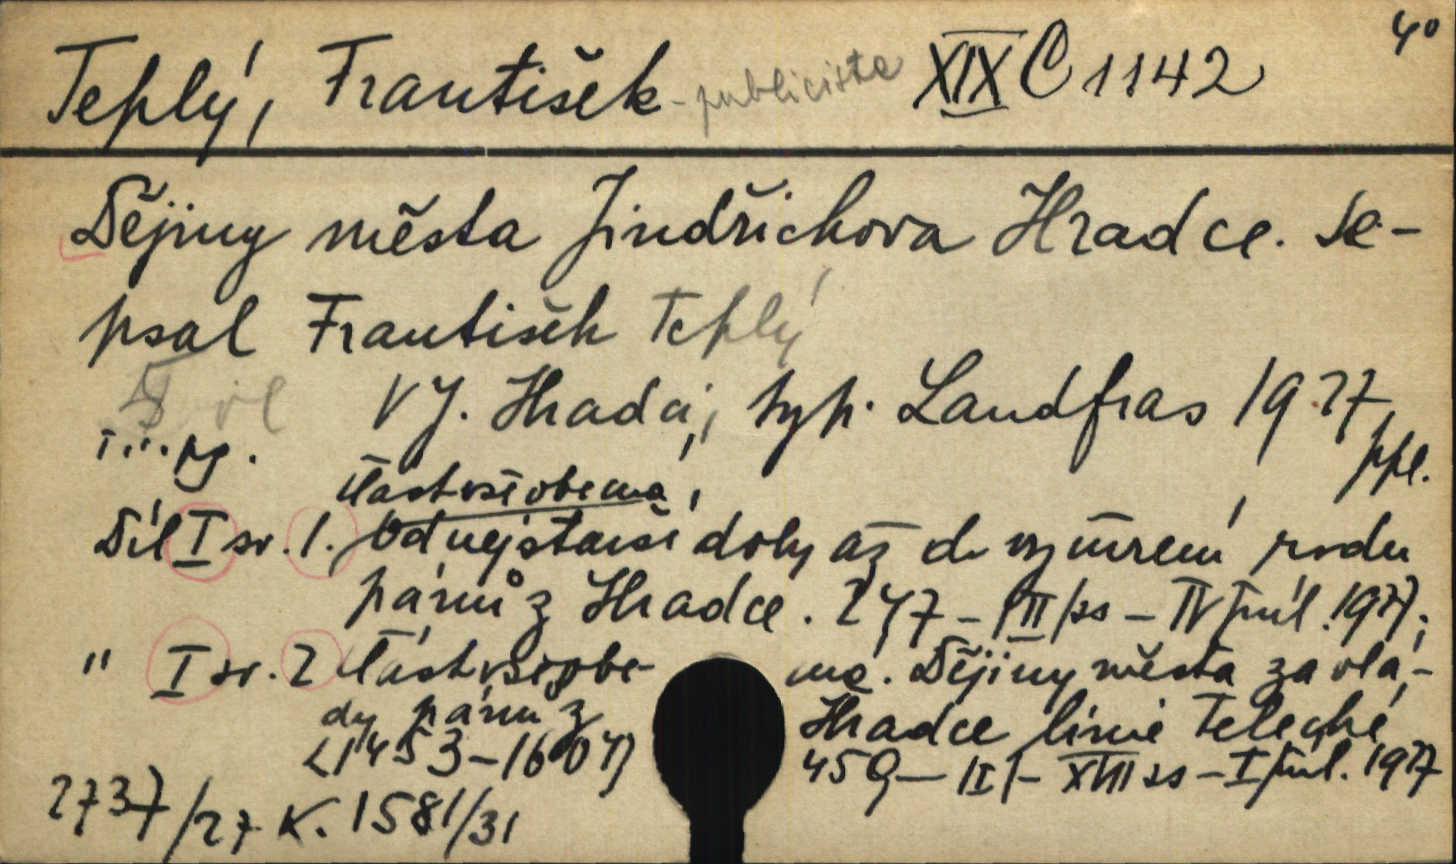 Teplý, František - publicista XIX C 1142 4°
Dějiny města Jindřichova Hradce. Se-
psal František Teplý
V J. Hradci, typ. Landfras 1927,
ppl.
Část všeobecná,
Díl I sv. 1. Od nejstarší doby až do vymření rodu
pánů z Hradce. 247 - [II] ss - IV příl. 1927;
" I sv. 2 Část všeobe- cná. Dějiny města za vlá-
dy pánů z Hradce linie Telecké
(1453-1604) 459 - [I] - XVIII ss - I příl. 1927
2737/27 K. 1581/31